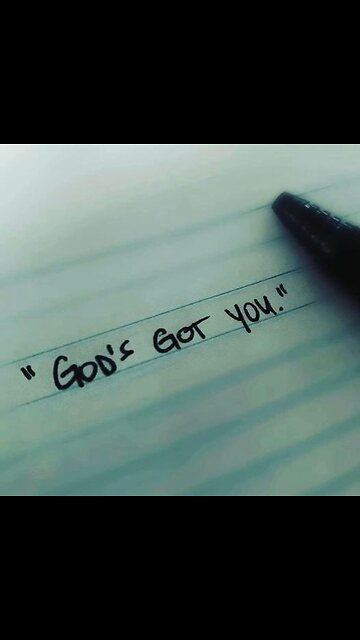 "God's Got you."